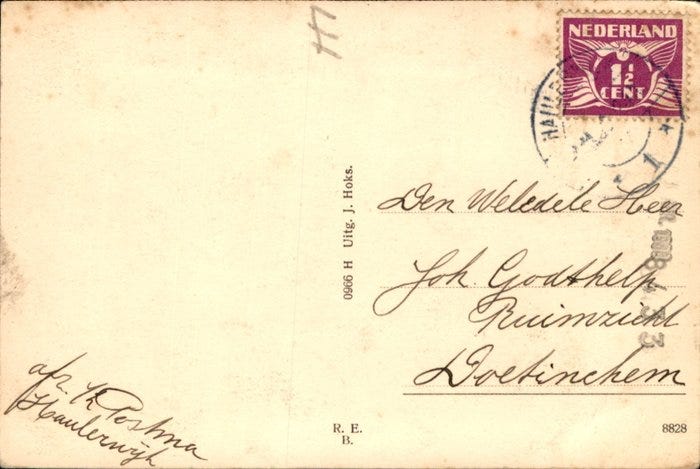 H
NEDERLAND
1½
CENT
HAULER
1
Den Weledele Heer
Joh Godthelp
Ruimzicht
Doetinchem
8 4 33
0966 H Uitg. J. Hoks.
afz. Postma
Haulerwijk
R. E.
B.
8828